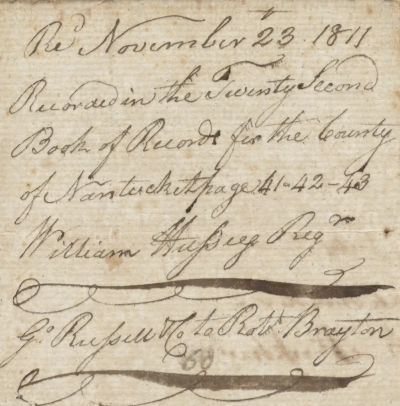 Rec November 23 1811
Recorded in the Twenty Second
Book of Records for the County
of Nantucket page 41-42-43
William Hussey Regr
Go. Russell & Co to Robt. Brayton
60